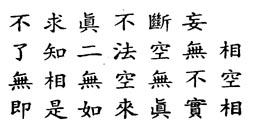 不求眞不斷妄
了知二法空無相
無相無空無不空
即是如來眞實相